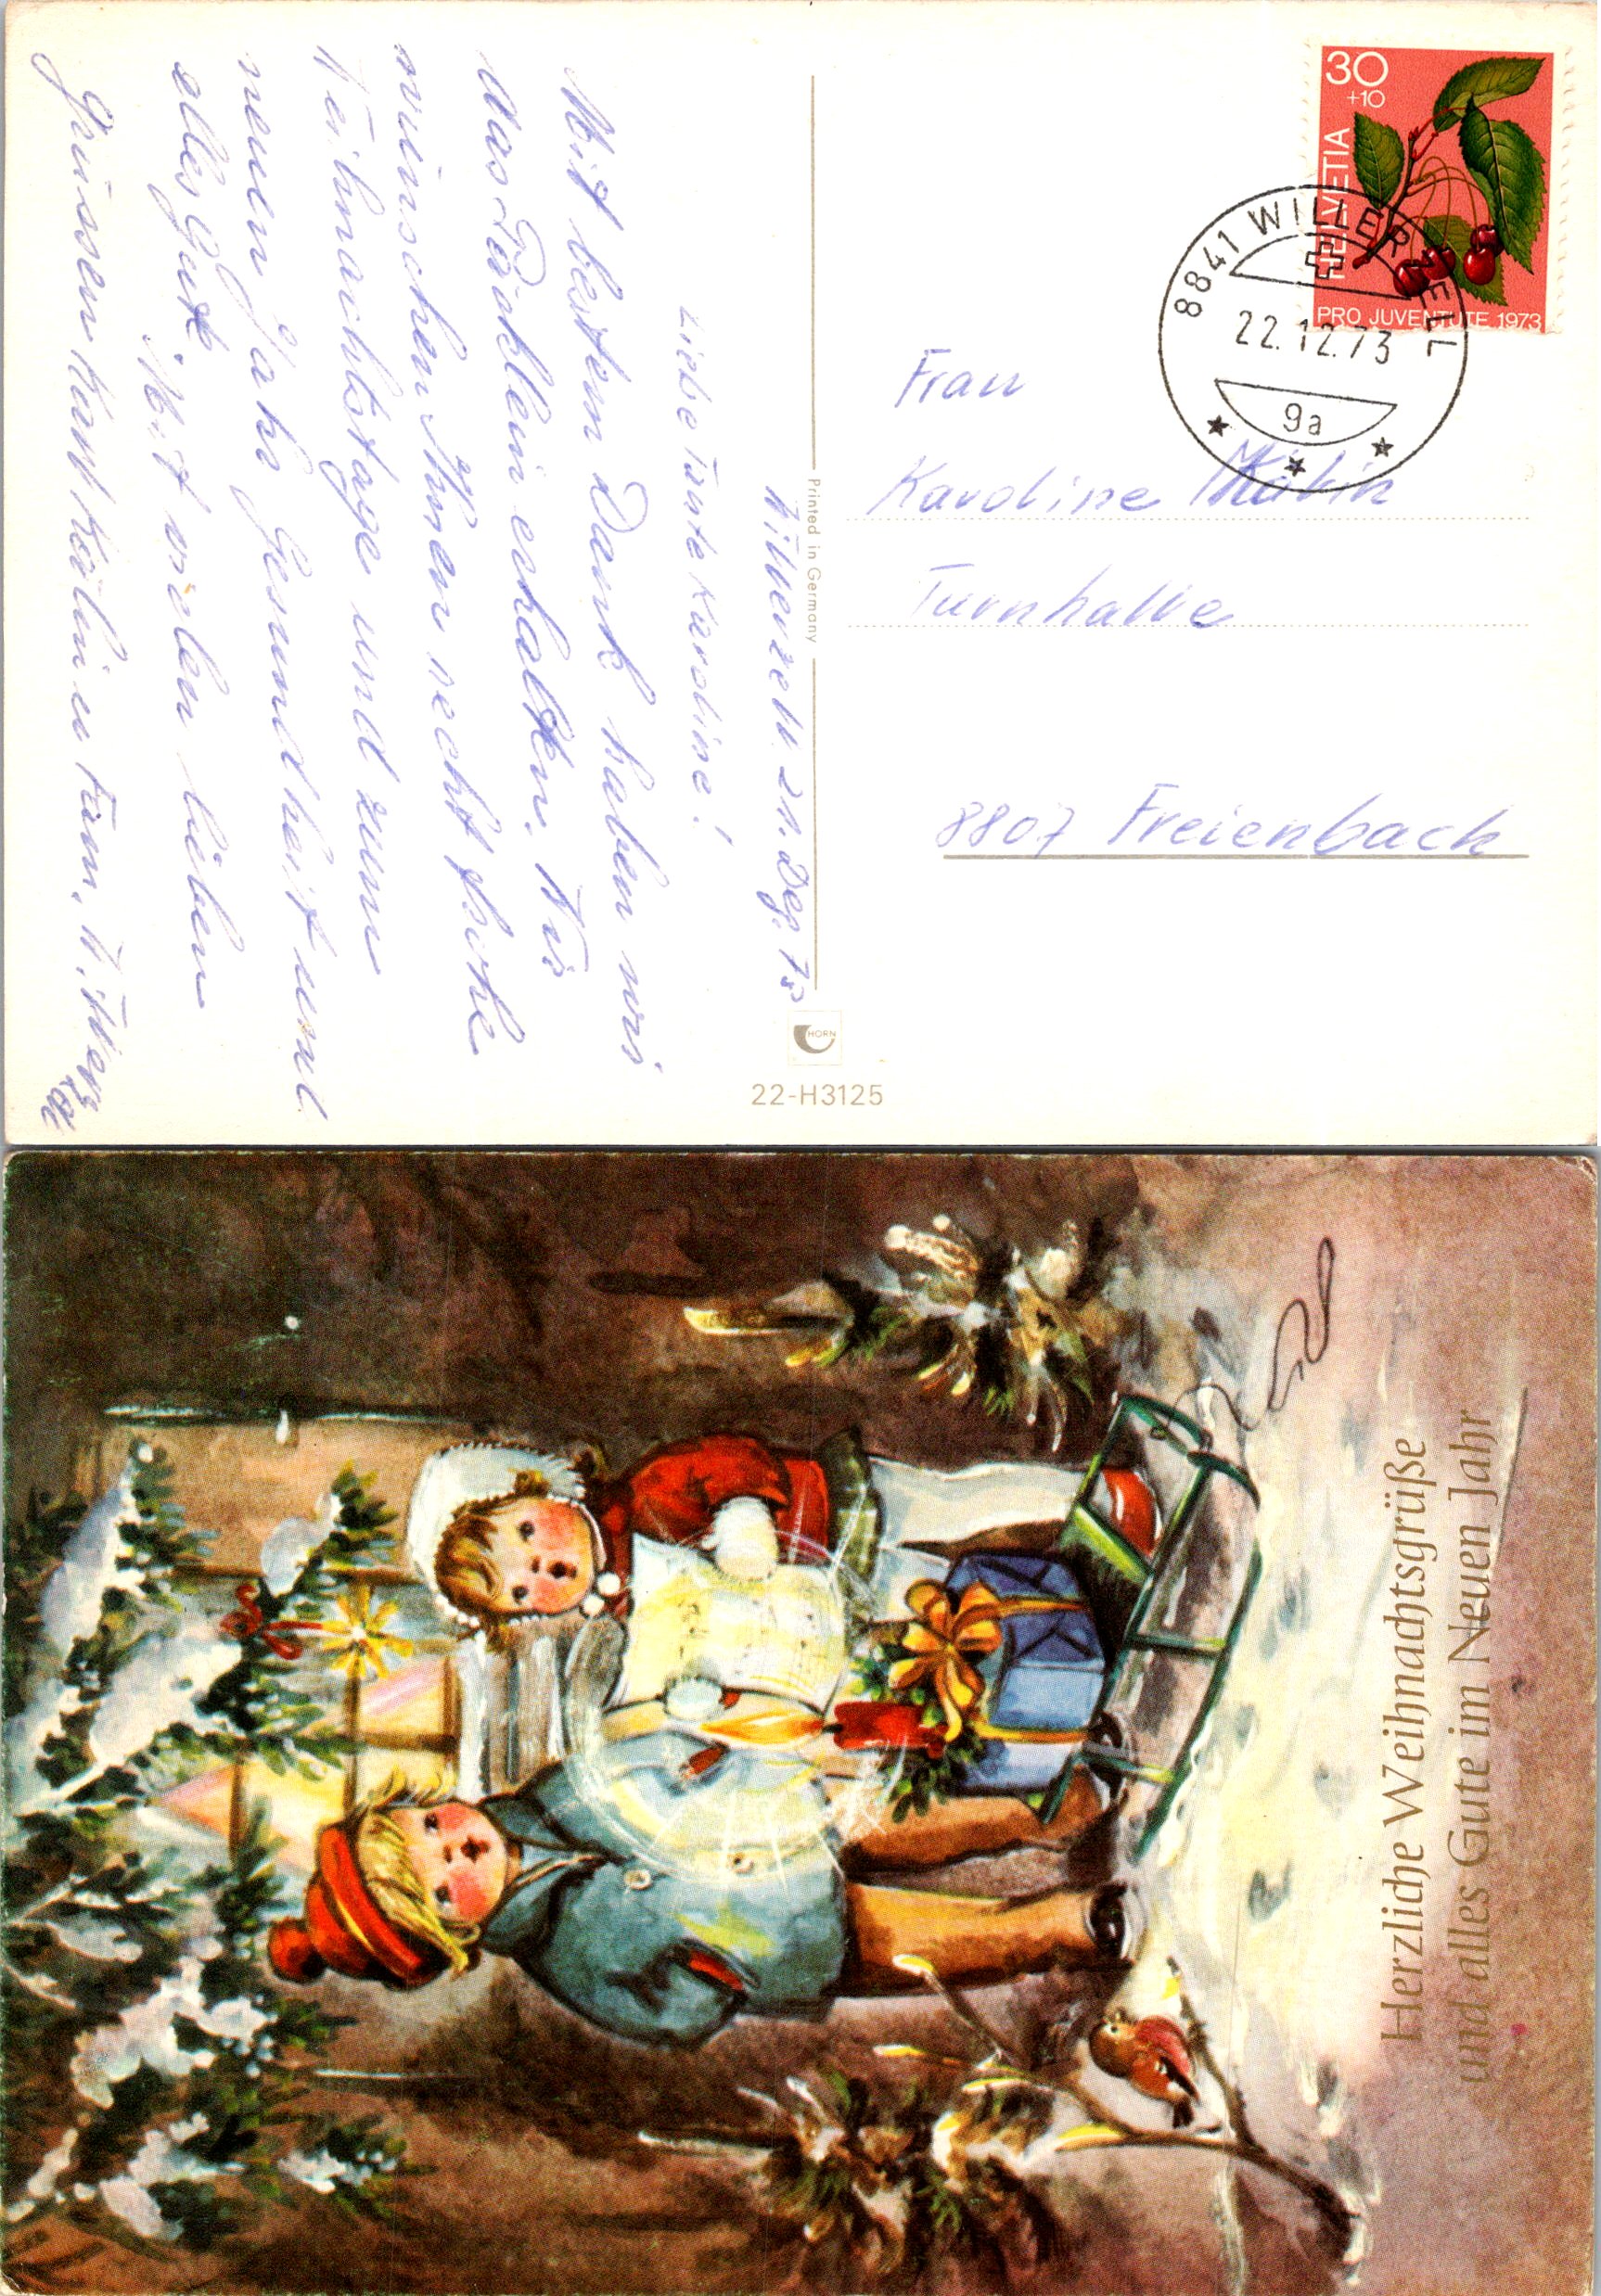 30
+10
HELVETIA
PRO JUVENTUTE 1973
8841 WILLERZELL
22.12.73
9a
Frau
Karoline Kälin
Turnhalle
8807 Freienbach
Printed in Germany
HORN
22-H3125
Willerzell 21. Dez. 73
Liebe Tante Karoline!
Mit bestem Dank haben wir
das Päcklein erhalten. Wir
wünschen Ihnen recht frohe
Weihnachtstage und zum
neuen Jahr Gesundheit und
alles Gute.
Mit vielen lieben
Grüssen Fam. Willerzell
Herzliche Weihnachtsgrüße
und alles Gute im Neuen Jahr